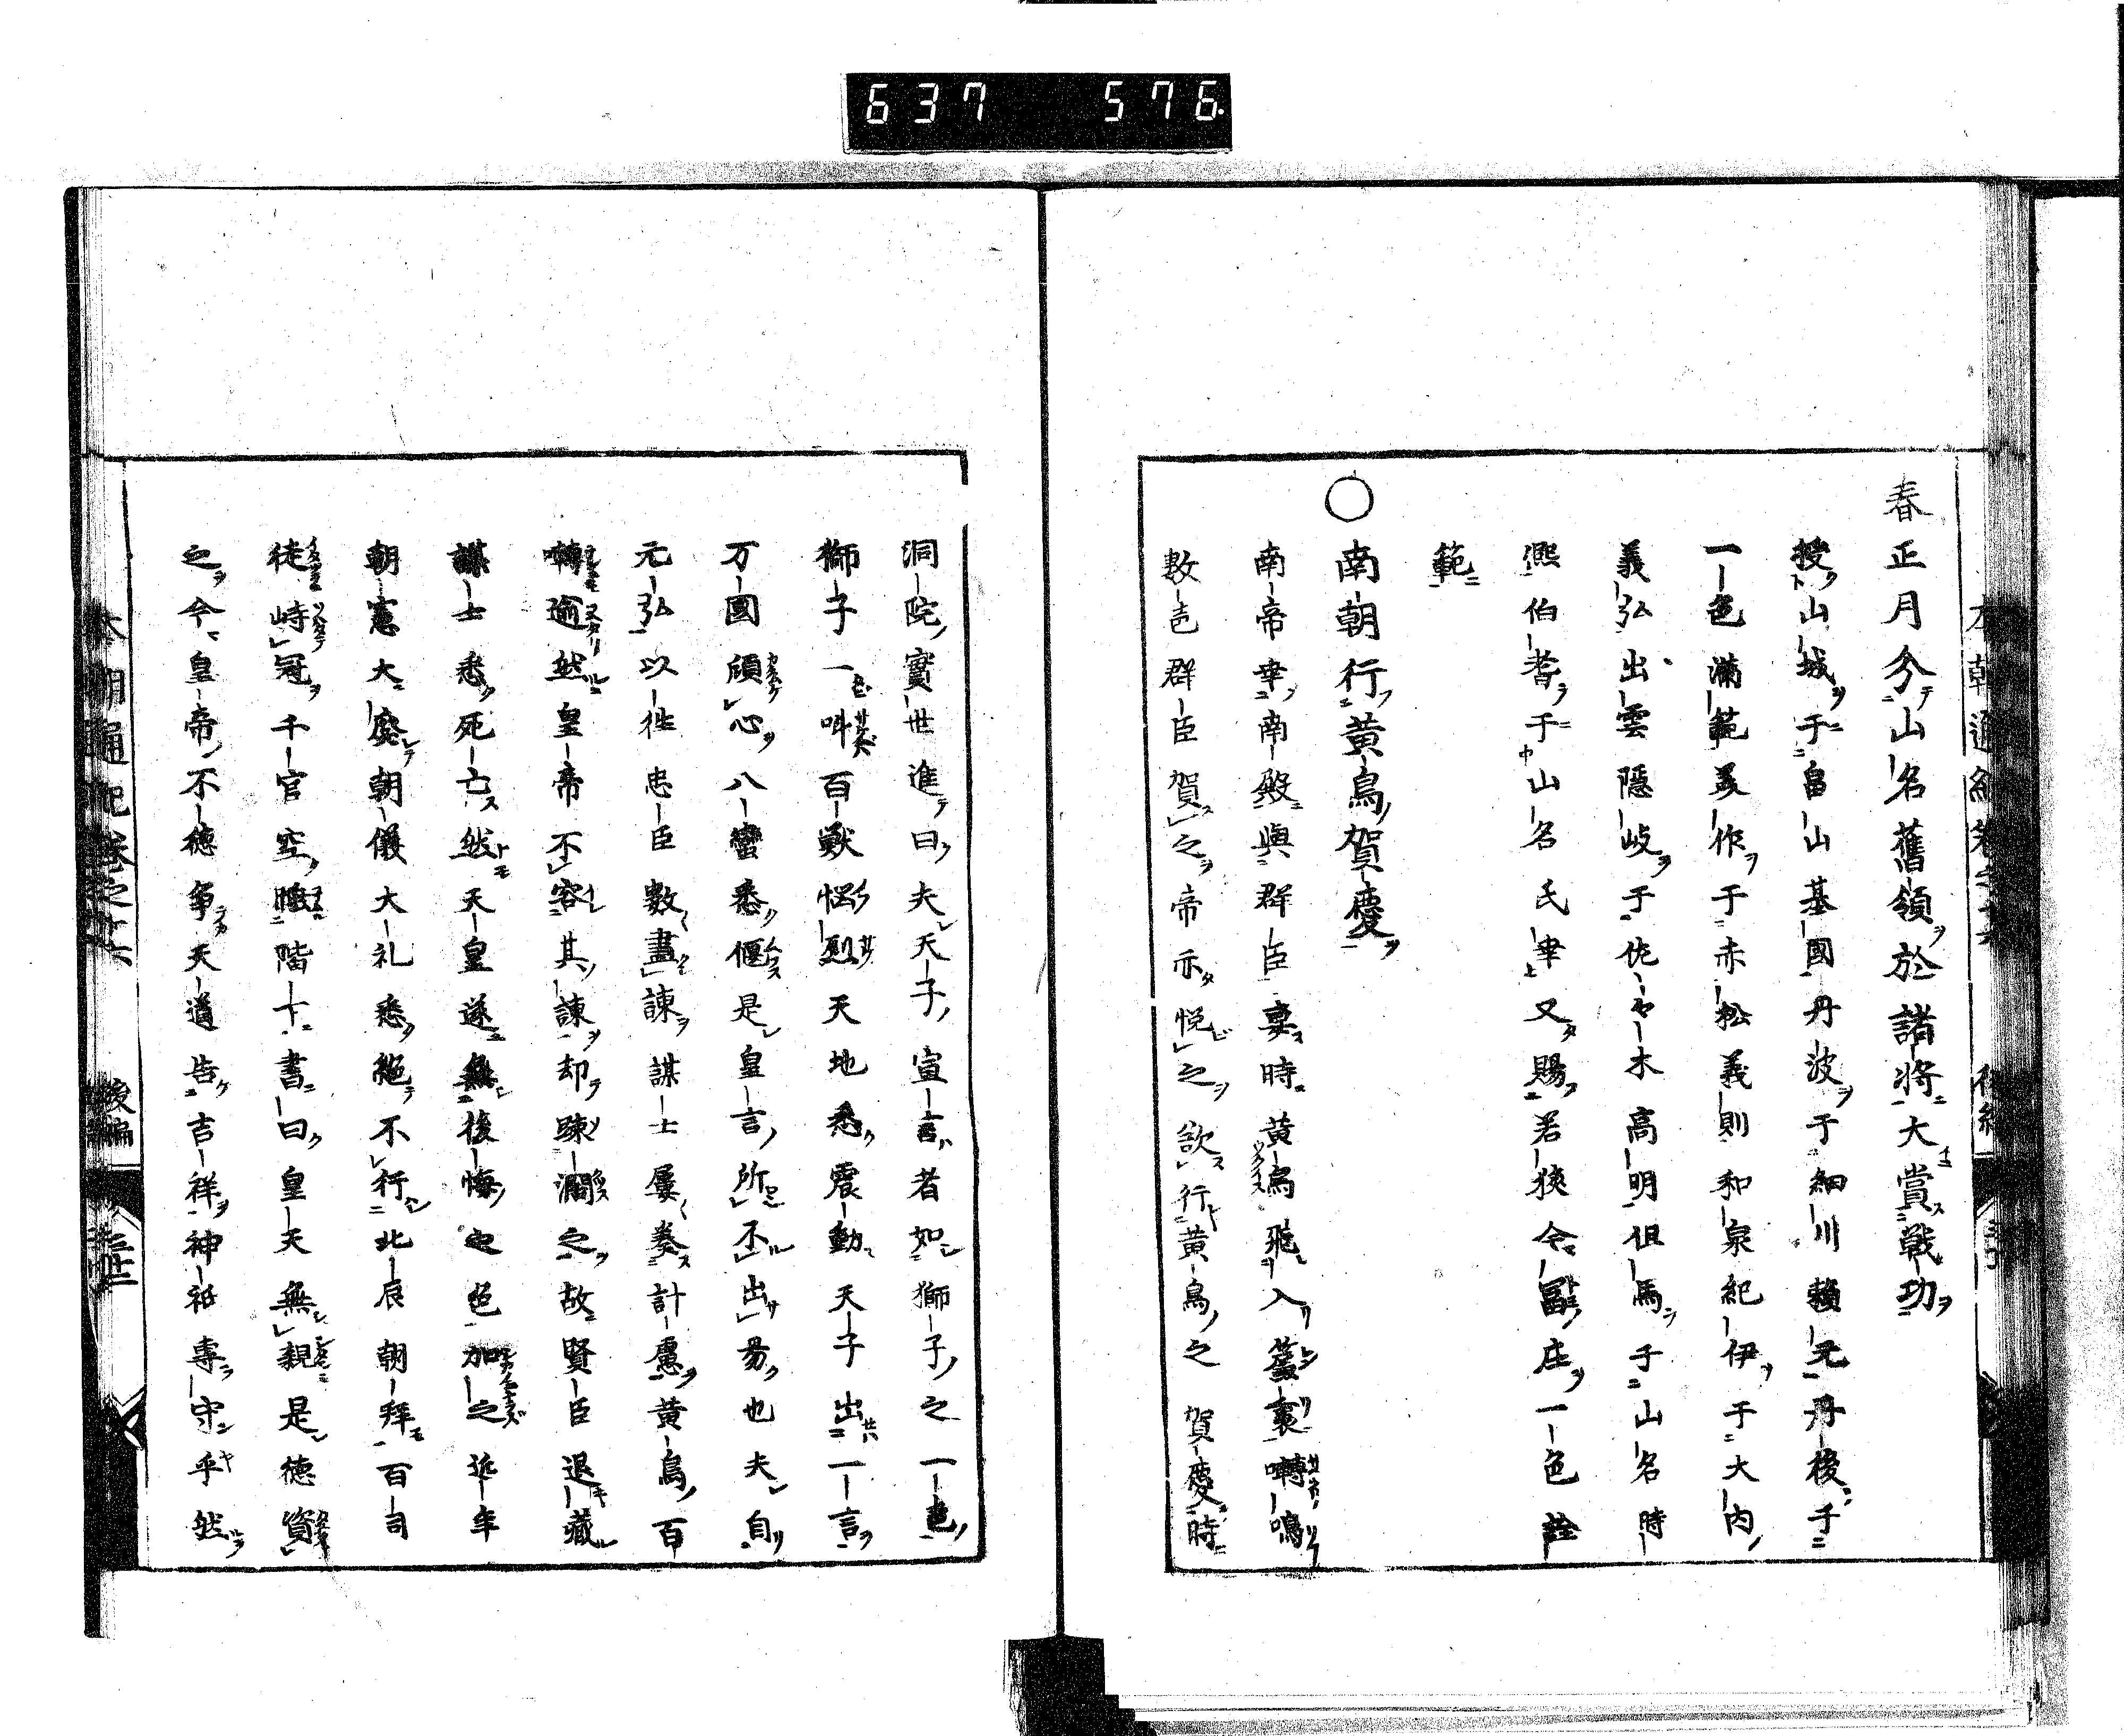 637 576
春正月分山名舊領於諸將大賞戰功
授山城于畠山基國丹波于細川頼元丹後于
一色滿範美作于赤松義則和泉紀伊于大内
義弘出雲隱岐于佐々木高明但馬于山名時
熈伯耆于山名氏幸又賜若狹令冨庄一色詮
範
〇南朝行黄鳥賀慶
南帝幸南殿與群臣宴時黄鳥飛入簾裏囀鳴
數声群臣賀之帝亦悦之欲行黄鳥之賀慶時
洞院實世進曰夫天子宣言者如獅子之一
獅子一呌百獸悩烈天地悉震動天子出一言
万國傾心八蠻悉偃是皇言所不出昜也夫自
元弘以徃忠臣數盡諫謀士屡奏計慮黄鳥百
囀逾然皇帝不容其諫却踈之故賢臣退藏
謀士悉死亡然天皇遂無後悔色加之近年
朝憲大廢朝儀大礼悉絶不行北辰朝拜百司
徒峙冠千官空階下書曰皇天無親是徳資
之今皇帝不徳争天道告吉祥神祇專守乎然
本朝通紀卷之十六 後編